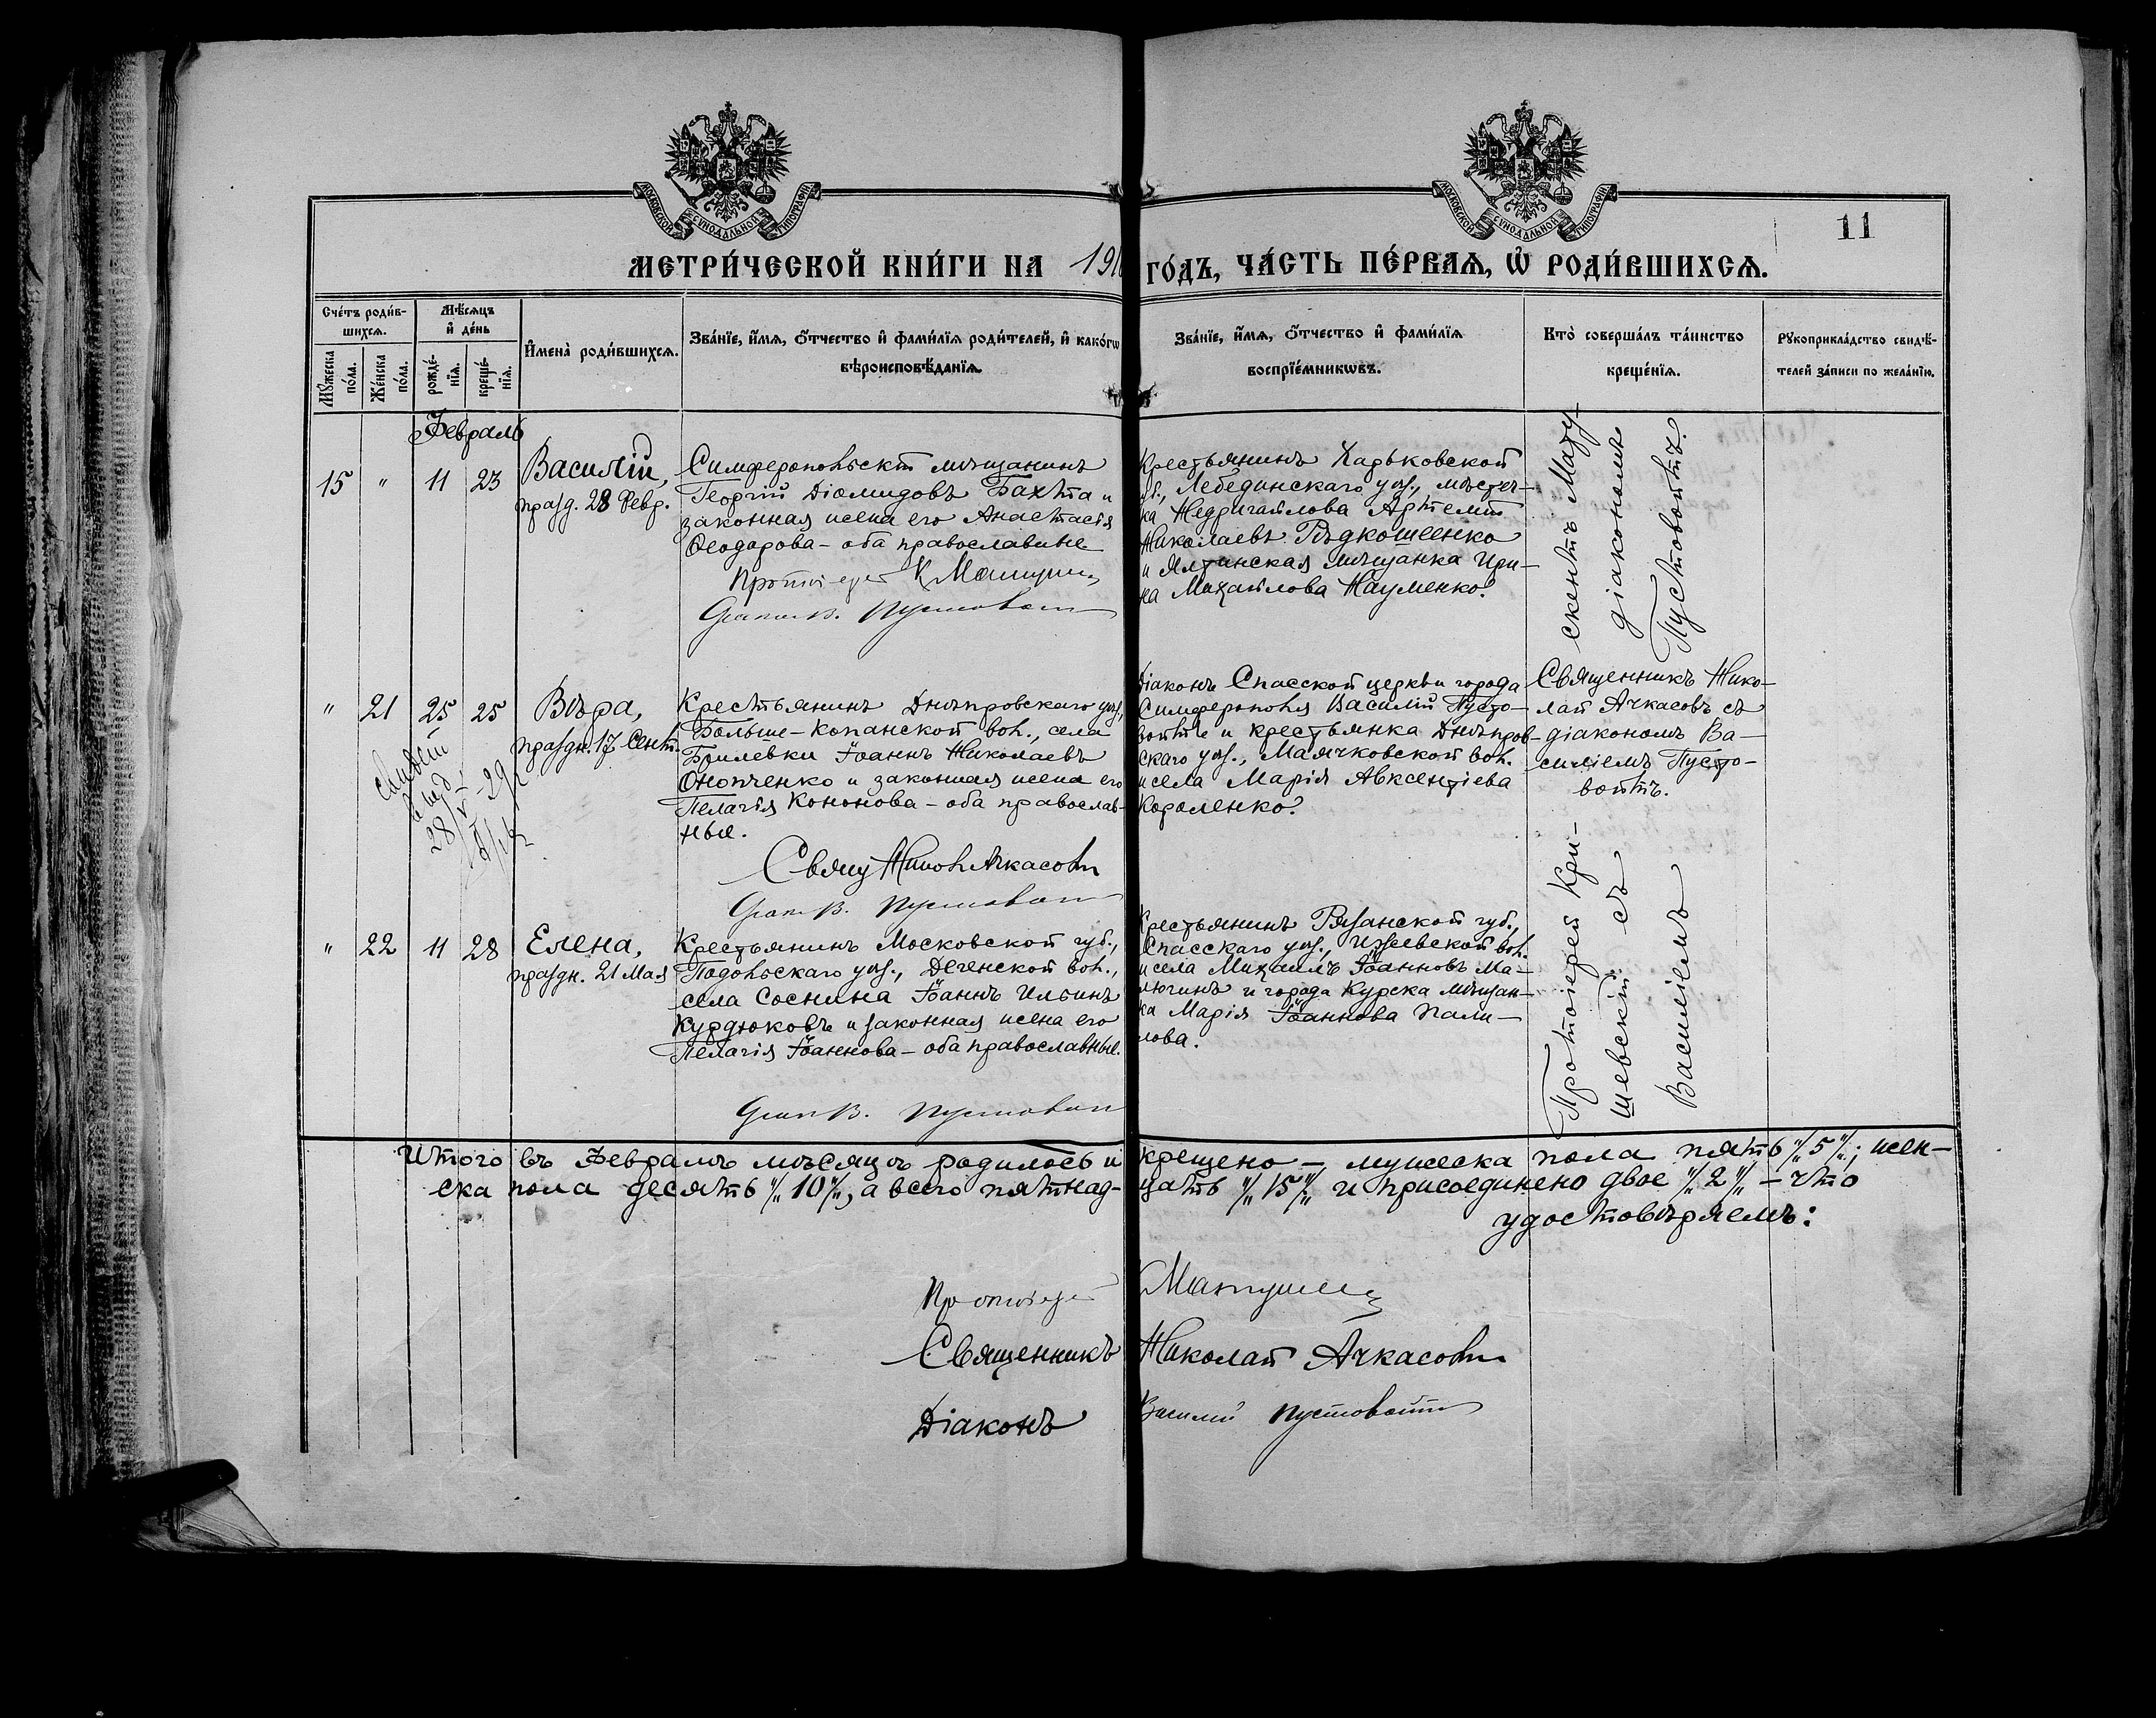 МОСКОВСКОЙ СѴНОДАЛЬНОЙ ТИПОГРАФІИ
МОСКОВСКОЙ СѴНОДАЛЬНОЙ ТИПОГРАФІИ
11
МЕТРИ́ЧЕСКОЙ КНИ́ГИ НА 191
ГО́ДЪ, ЧА́СТЬ ПЕ́РВАѦ, Ѡ РОДИ́ВШИХСѦ.
Сче́тъ роди́в-
шихсѧ.
Мꙋ́жеска по́ла.
Же́нска по́ла.
Мѣ́сѧцъ
и҆ де́нь
рожде́-
нїѧ.
креще́-
нїѧ.
И҆мена̀ роди́вшихсѧ.
Зва́нїе, и҆́мѧ, ѻ҆́тчество и҆ фами́лїѧ роди́телей, и҆ како́гѡ
вѣроисповѣ́данїѧ.
Зва́нїе, и҆́мѧ, ѻ҆́тчество и҆ фами́лїѧ
воспрїе́мникѡвъ.
Кто̀ соверша́лъ та́инство
креще́нїѧ.
Рꙋкоприкла́дство свидѣ́-
телей за́писи по жела́нїю.
Февраль
15 " 11 23
Василій,
празд. 28 Февр.
Симферопольскій мѣщанинъ
Георгій Діомидовъ Бахта и
законная жена его Анастасія
Ѳеодорова – оба православные
Протоіерей К Мануш
Діак. В. Пустовойт
Крестьянинъ Харьковской
губ., Лебединскаго уѣз., мѣстеч-
ка Недригайлова Артемій
Николаевъ Рѣдкошеенко
и Ялтинская мѣщанка Ири-
на Михайлова Науменко.
скентъ Мару-
діакономъ
Пустовойтъ.
" 21 25 25
Вѣра,
праздн. 17 Сент.
Крестьянинъ Днѣпровскаго уѣз.,
Больше-Копанской вол., села
Брилевки Іоаннъ Николаевъ
Онопченко и законная жена его
Пелагія Кононова – оба православ-
ные.
Свящ Никол Ачкасовъ
Діак. В. Пустовойт
Діаконъ Спасской церкви города
Симферополя Василій Пусто-
войтъ и крестьянка Днѣпров-
скаго уѣз., Маячковской вол.
и села Марія Авксентіева
Короленко.
Священникъ Нико-
лай Ачкасовъ съ
діакономъ Ва-
силіемъ Пусто-
войтъ.
28/
" 22 11 28
Елена,
праздн. 21 Мая
Крестьянинъ Московской губ.,
Подольскаго уѣз., Дегенской вол.,
села Соснина Іоаннъ Ильинъ
Курдюковъ и законная жена его
Пелагія Іоаннова – оба православные.
Діак В. Пустовойт
Крестьянинъ Рязанской губ.,
Спасскаго уѣз., Ижевской вол.
и села Михаилъ Іоанновъ Ма-
лючинъ и города Курска мѣщан-
ка Марія Іоаннова Пали-
лова.
Протоіерей Кри-
шевскій съ
Василіемъ
Итого въ Февралѣ мѣсяцѣ родилось и крещено – мужеска пола пять "/5"/; жен-
ска пола десять "/10"/, а всего пятнад-цать "/15"/ и присоединено двое "/2"/ – что
удостовѣряемъ:
Протоіерей
Священникъ Николай Ачкасовъ
Діаконъ Василій Пустовойтъ